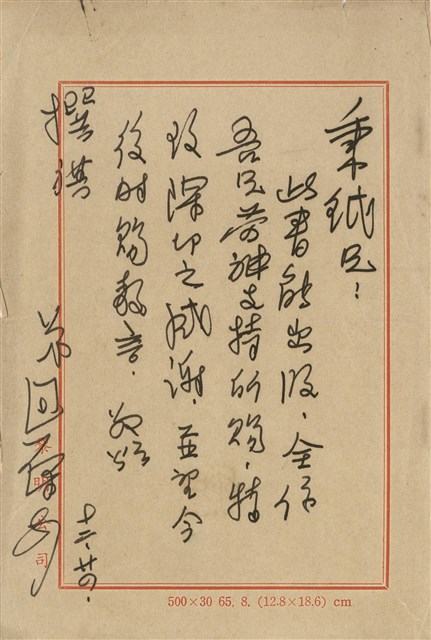 秉鉞兄：
此書能出版，全係
吾兄勞神支持所賜，特
致深切之感謝，並望今
後時賜教言，敬頌
撰祺
弟
十二、廿四.
黎明公司
500×30 65. 8. (12.8×18.6) cm